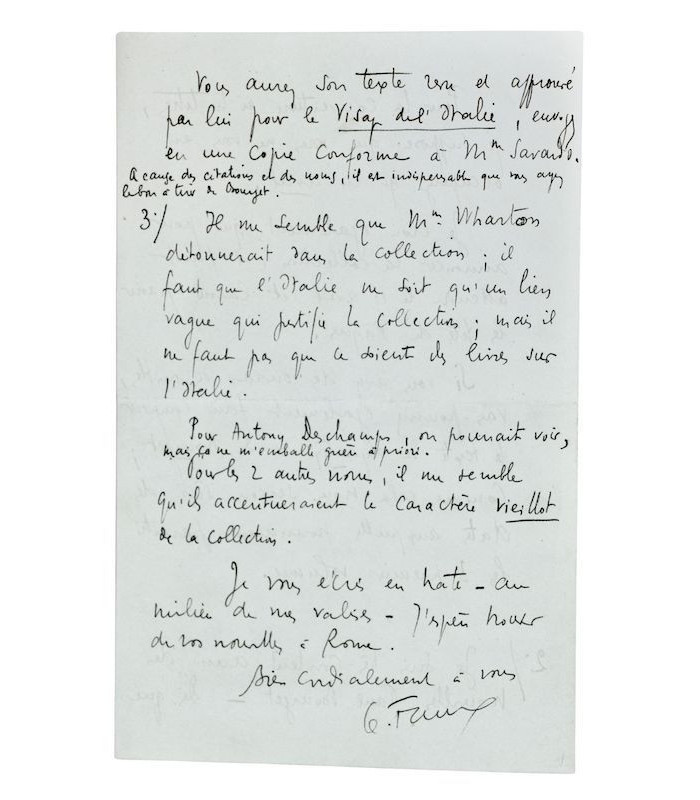 Vous aurez son texte revu et approuvé
par lui pour le Visage de l'Italie, envoyé
en une Copie Conforme à Mme
A cause des citations et des noms, il est indispensable que vous ayez
le bon à tirer de Bourget.
3°/ Il me semble que Mme Wharton
détonnerait dans la collection ; il
faut que l'Italie ne soit qu'un lien
vague qui justifie la collection ; mais il
ne faut pas que ce soient des livres sur
l'Italie.
Pour Antony Deschamps, on pourrait voir,
mais ça ne m'emballe guère à priori.
Pour les 2 autres noms, il me semble
qu'ils accentueraient le caractère vieillot
de la collection.
Je vous écris en hate - au
milieu de mes valises - J'espère trouver
de vos nouvelles à Rome.
Bien cordialement à vous
G. Faure